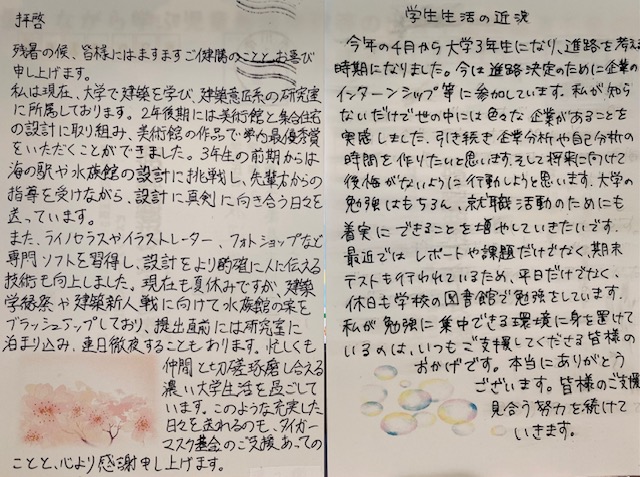 拝啓
残暑の候、皆様にはますますご健勝のこととお喜び
申し上げます。
私は現在、大学で建築を学び、建築意匠系の研究室
に所属しております。2年後期には美術館と集合住宅
の設計に取り組み、美術館の作品で学内最優秀賞
をいただくことができました。3年生の前期からは
海の駅や水族館の設計に挑戦し、先輩方からの
指導を受けながら、設計に真剣に向き合う日々を
送っています。
また、ライノセラスやイラストレーター、フォトショップなど
専門ソフトを習得し、設計をより的確に人に伝える
技術も向上しました。現在も夏休みですが、建築
学縁祭や建築新人戦に向けて水族館の案を
ブラッシュアップしており、提出直前には研究室に
泊まり込み、連日徹夜することもあります。忙しくも
仲間と切磋琢磨し合える
濃い大学生活を過ごして
います。このような充実した
日々を送れるのも、タイガー
マスク基金のご支援あっての
ことと、心より感謝申し上げます。
学生生活の近況
今年の4月から大学3年生になり、進路を考え
時期になりました。今は進路決定のために企業の
インターンシップ等に参加しています。私が知ら
ないだけで世の中には色々な企業があることを
実感しました。引き続き企業分析や自己分析の
時間を作りたいと思います。そして将来に向けて
後悔がないように行動しようと思います。大学の
勉強はもちろん、就職活動のためにも
着実にできることを増やしていきたいです。
最近ではレポートや課題だけでなく、期末
テストも行われているため、平日だけでなく、
休日も学校の図書館で勉強をしています。
私が勉強に集中できる環境に身を置けて
いるのは、いつもご支援してくださる皆様の
おかげです。本当にありがとう
ございます。皆様のご支援
見合う努力を続けて
いきます。